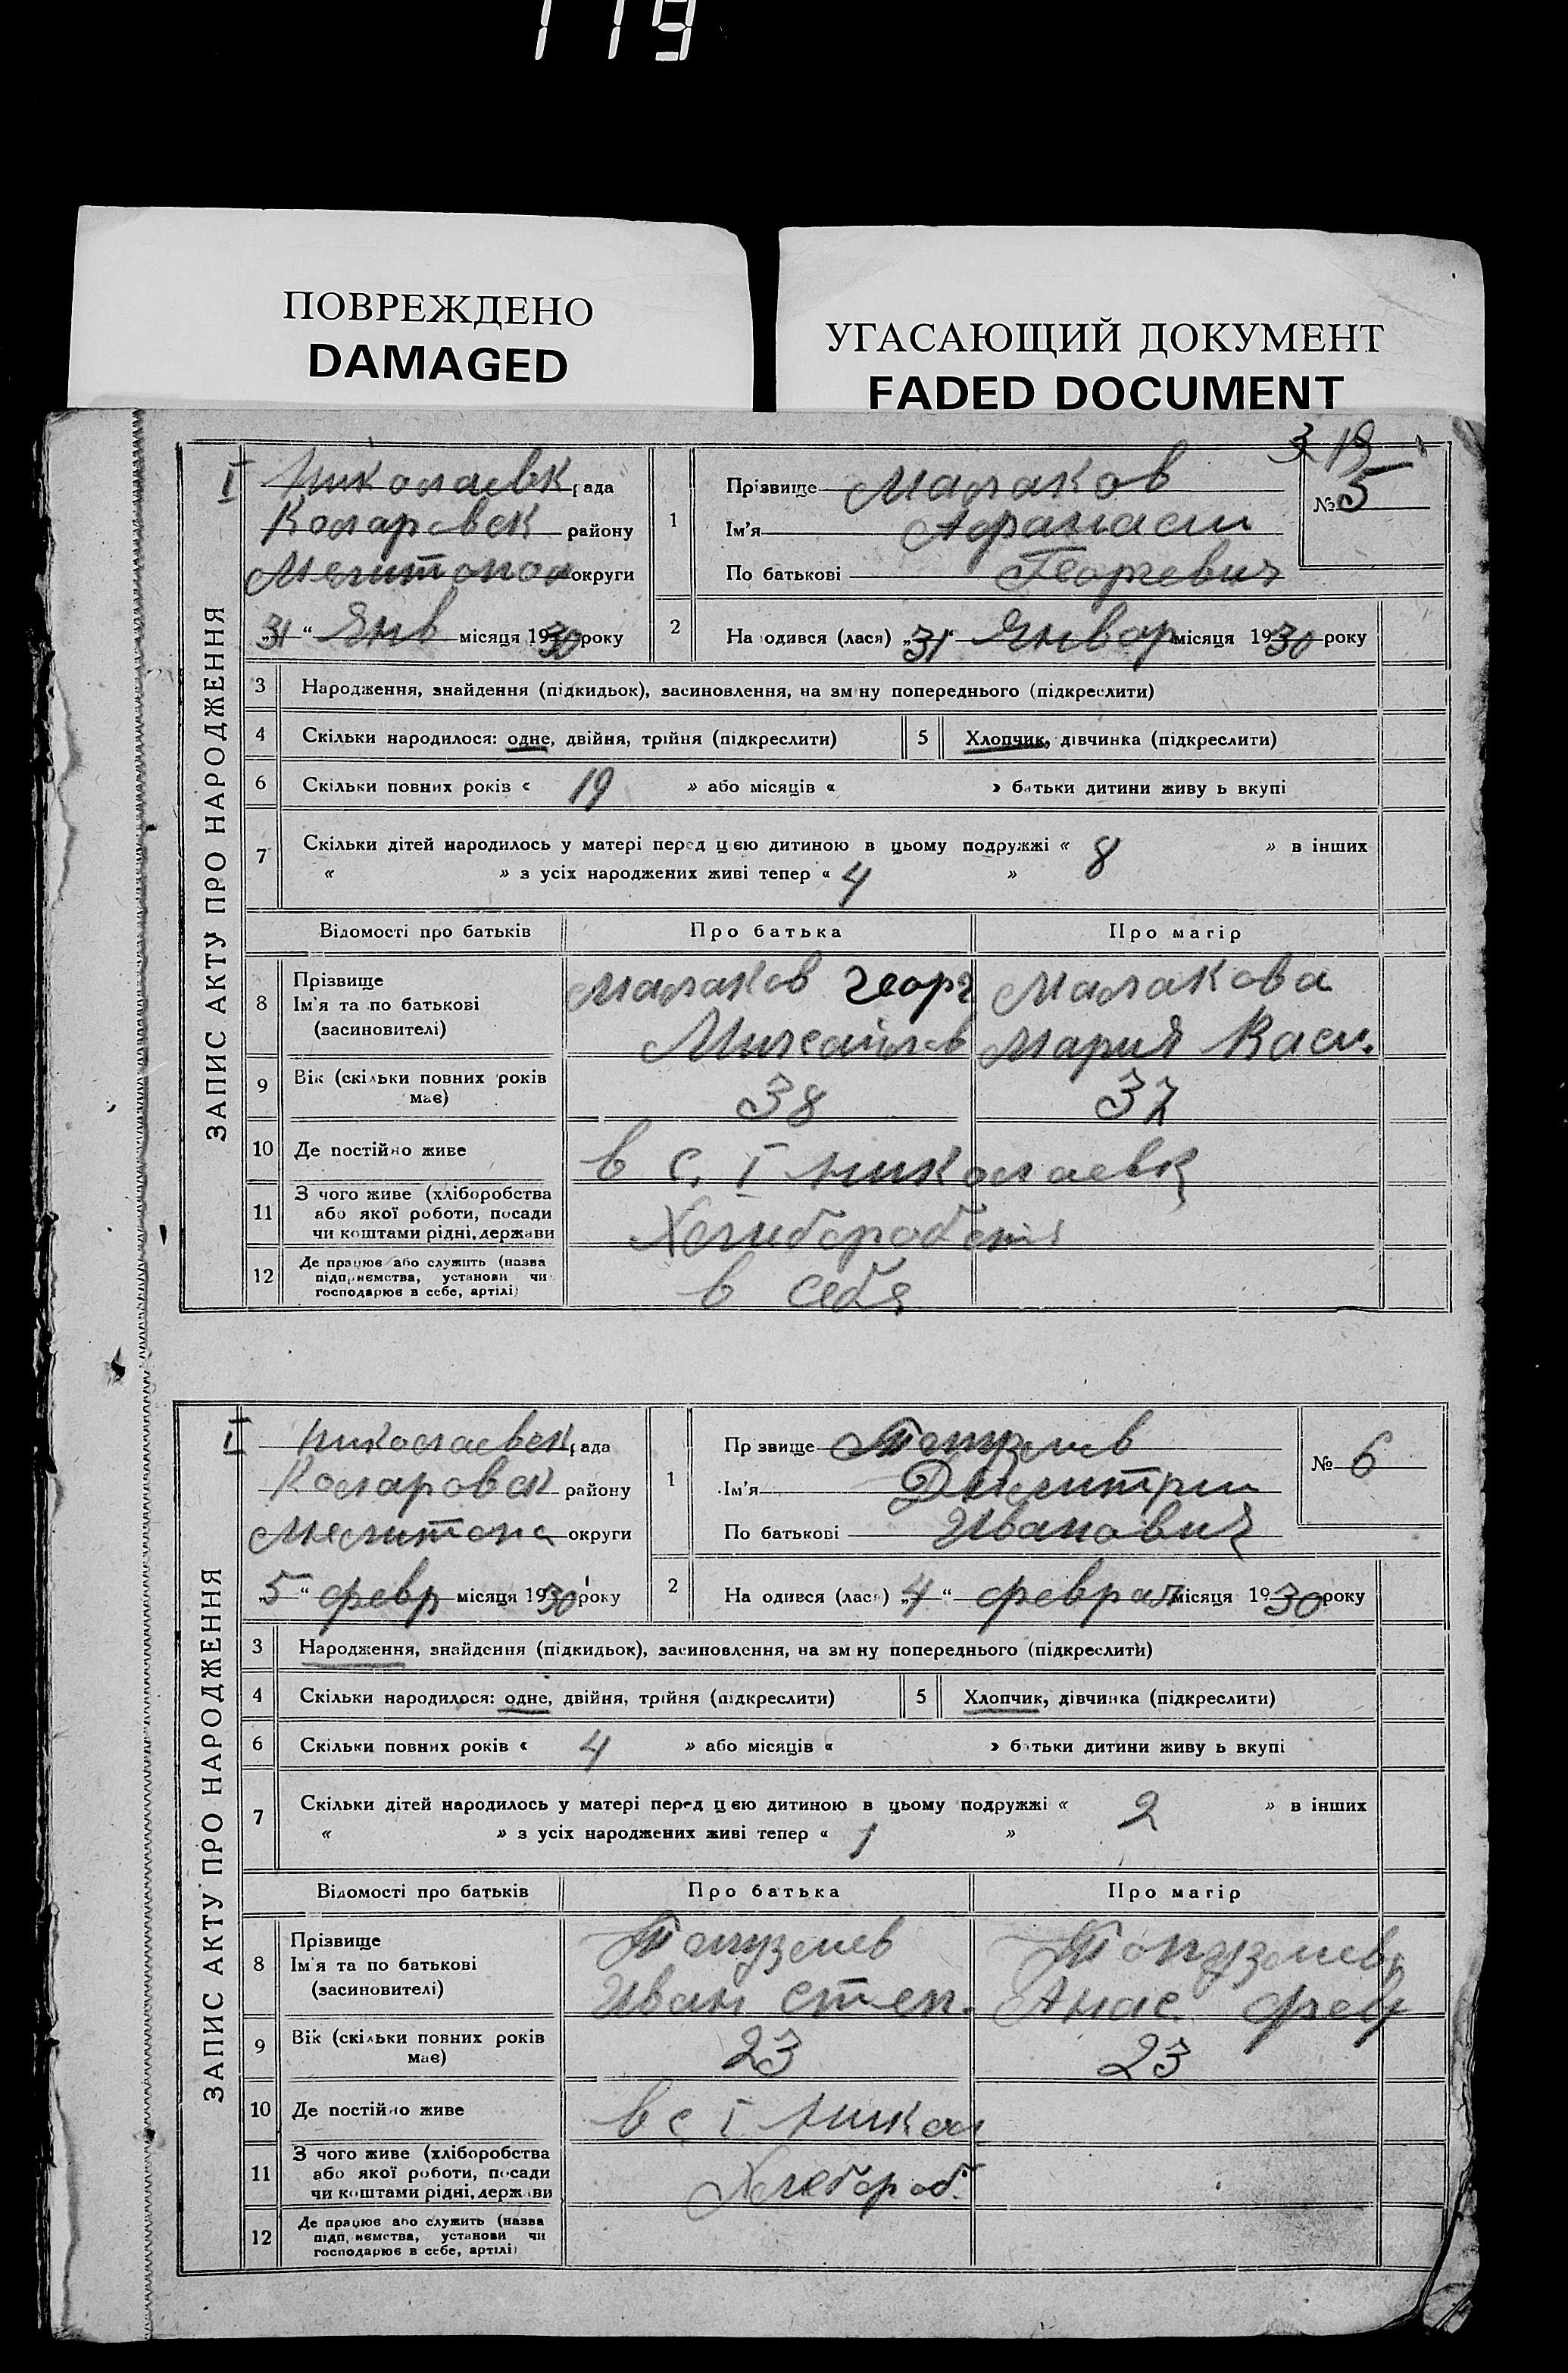 119
ПОВРЕЖДЕНО
DAMAGED
УГАСАЮЩИЙ ДОКУМЕНТ
FADED DOCUMENT
3 19
ЗАПИС АКТУ ПРО НАРОДЖЕННЯ
I Николаевк рада
Коларовск району
Мелитопол округи
„31“ Янв місяця 1930 року
1 Прізвище Малаков
Ім'я Афанасии
По батькові Георгевич
№ 5
2 На одився (лася) „31“ Январ місяця 1930 року
3 Народження, знайдення (підкидьок), засиновлення, на зм ну попереднього (підкреслити)
4 Скільки народилося: одне, двійня, трійня (підкреслити) 5 Хлопчик, дівчинка (підкреслити)
6 Скільки повних років « 19 » або місяців « » батьки дитини живу ь вкупі
7 Скільки дітей народилось у матері перед цією дитиною в цьому подружжі « 8 » в інших
« » з усіх народжених живі тепер « 4 »
Відомості про батьків Про батька Про матір
8 Прізвище
Ім'я та по батькові
(засиновителі)
Малаков Георг
Михайлов
Малакова
Мария Васи.
9 Вік (скільки повних років
має)
38 37
10 Де постійно живе в с. I Николаевк
11 З чого живе (хліборобства
або якої роботи, посади
чи коштами рідні, держави
12 Де працює або служить (назва
підприємства, установи чи
господарює в себе, артілі)
в себя
ЗАПИС АКТУ ПРО НАРОДЖЕННЯ
I Николаевск рада
Коларовск району
Мелитопо округи
„5“ февр місяця 1930 року
1 Пр звище Топузлиев
Ім'я Димитрии
По батькові Иванович
№ 6
2 На одився (лася) „4“ феврал місяця 1930 року
3 Народження, знайдення (підкидьок), засиновлення, на зм ну попереднього (підкреслити)
4 Скільки народилося: одне, двійня, трійня (підкреслити) 5 Хлопчик, дівчинка (підкреслити)
6 Скільки повних років « 4 » або місяців « » батьки дитини живу ь вкупі
7 Скільки дітей народилось у матері перед цією дитиною в цьому подружжі « 2 » в інших
« » з усіх народжених живі тепер « 1 »
Відомості про батьків Про батька Про матір
8 Прізвище
Ім'я та по батькові
(засиновителі)
Иван Степ.
Анас.
9 Вік (скільки повних років
має)
23 23
10 Де постійно живе в с I Никол
11 З чого живе (хліборобства
або якої роботи, посади
чи коштами рідні, держави
Хлебороб.
12 Де працює або служить (назва
підприємства, установи чи
господарює в себе, артілі)